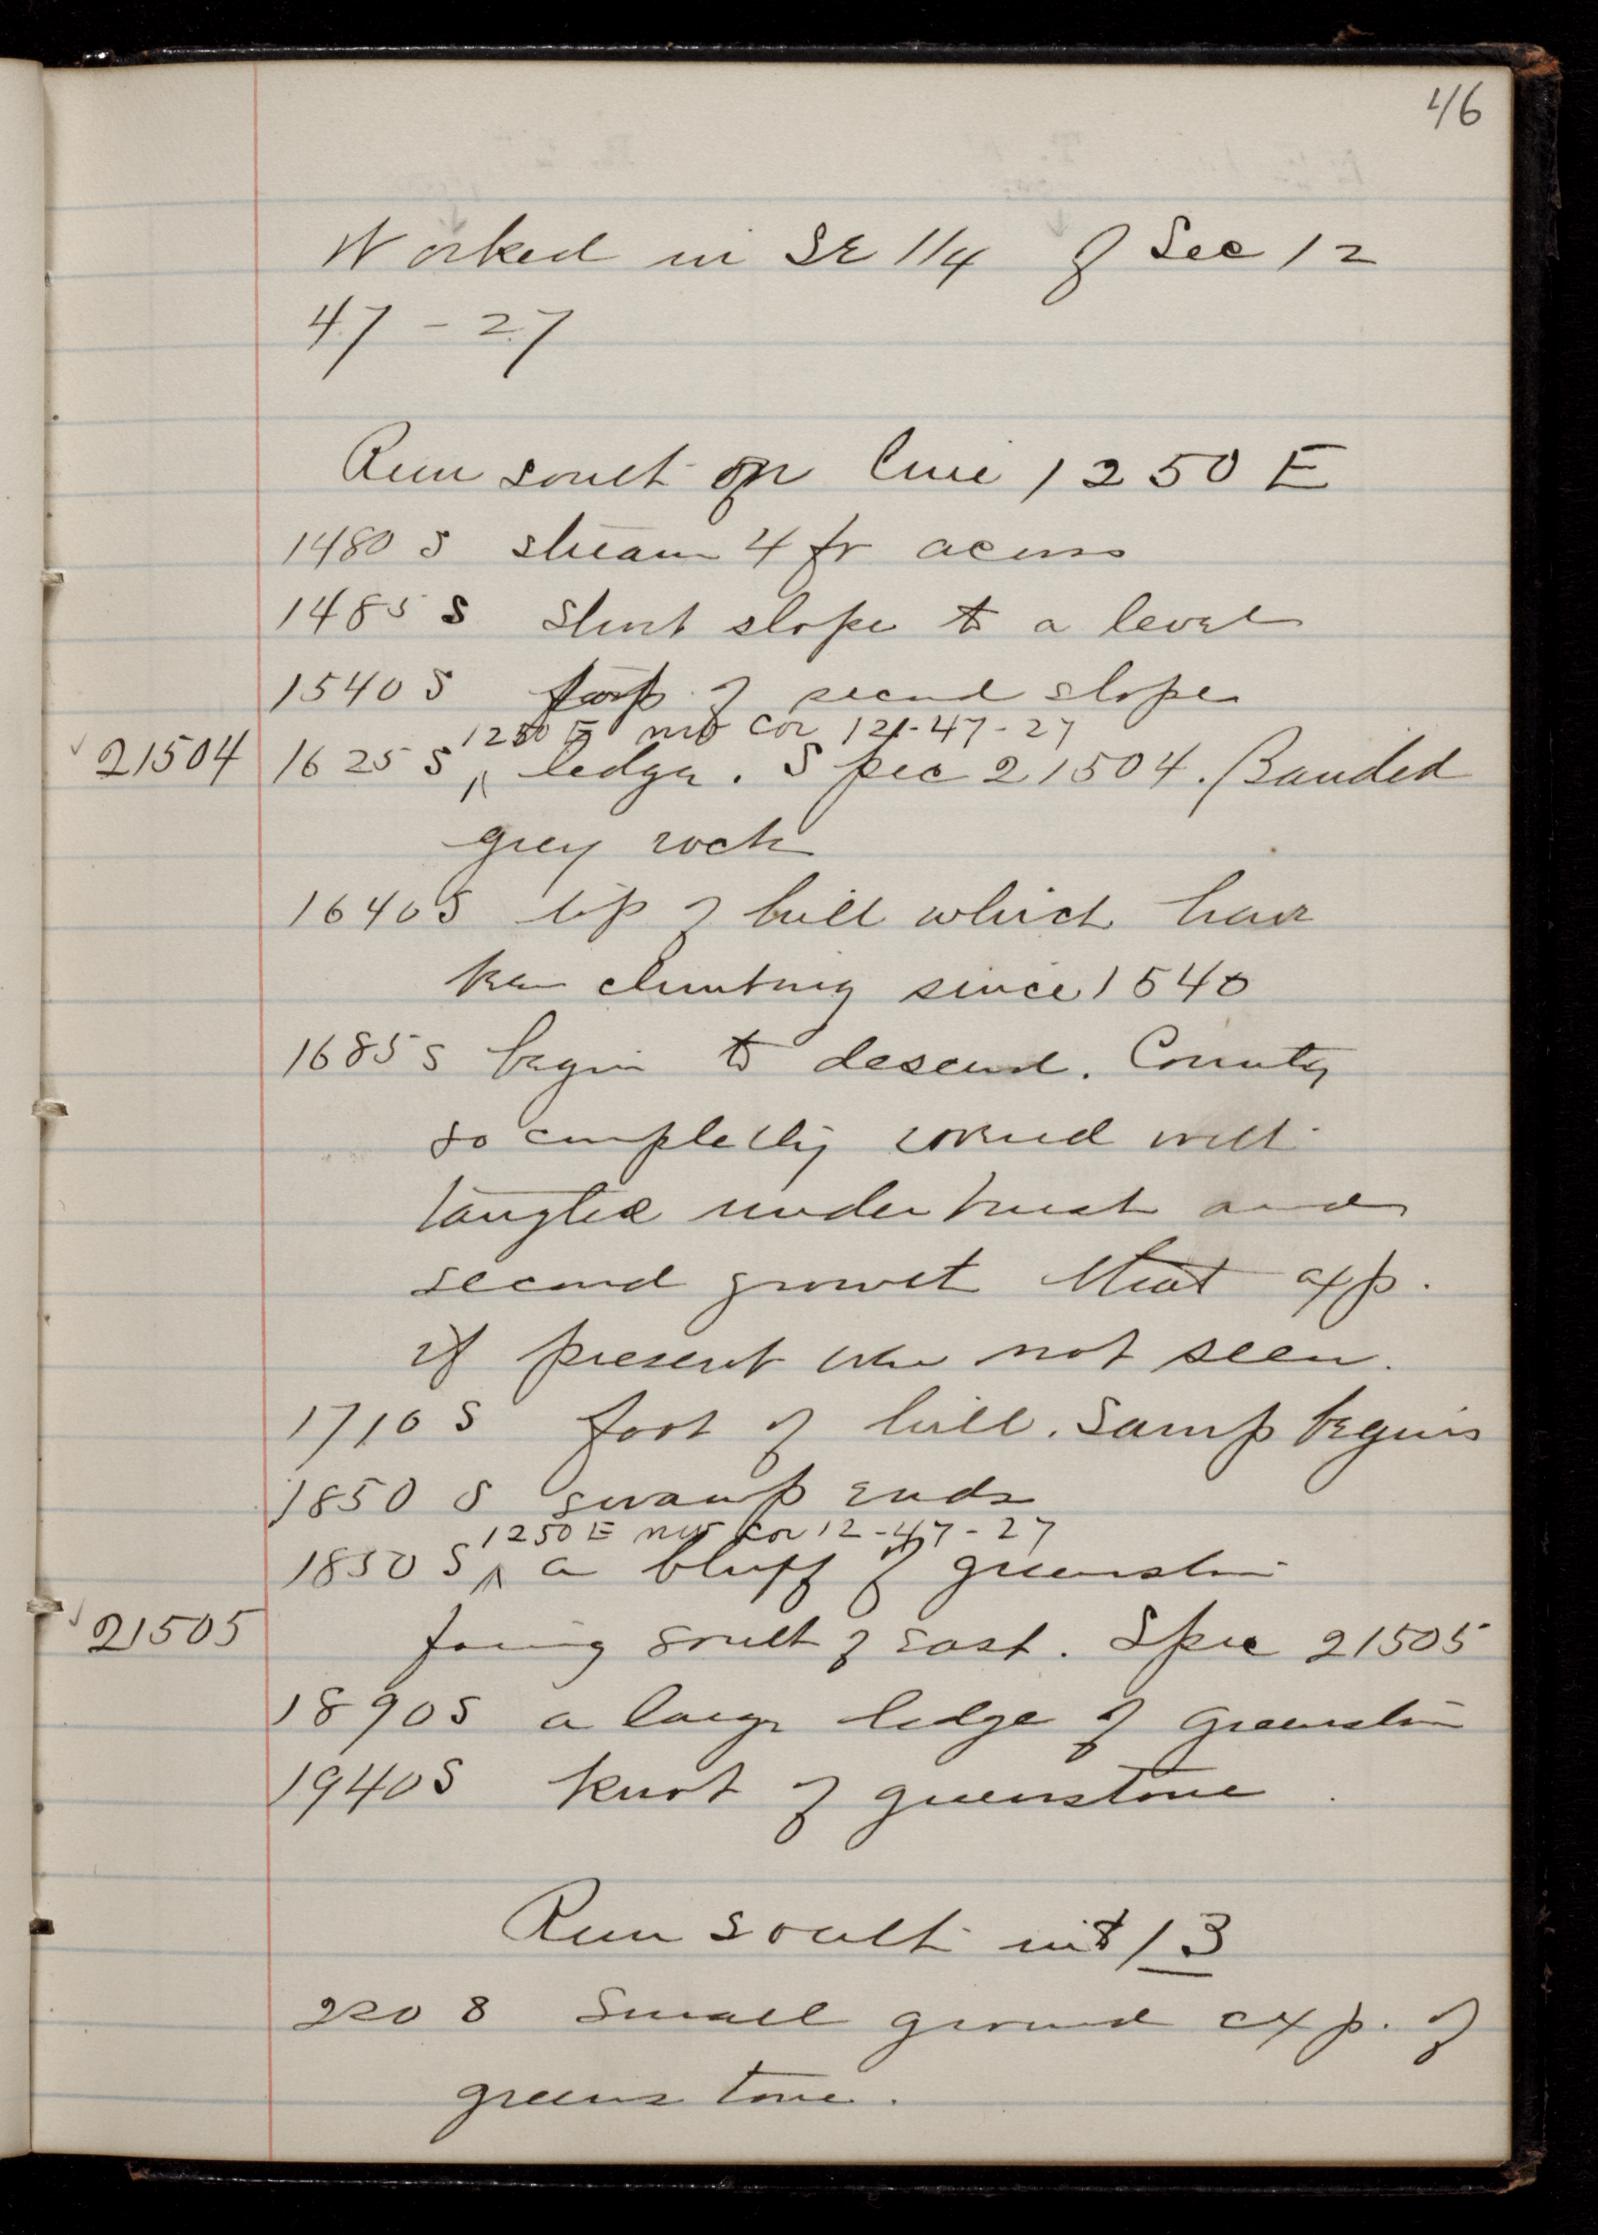 46
Worked in SE 1/4 of Sec 12
47 - 27
Run south on line 1250 E
1480 S stream 4 ft across
1485 S short slope to a level
1540 S foot of second slope
1250 E NW Cor 12-47-27
21504 1625 S ^ ledge. Spec 21504. Banded
grey rock
1640 S top of hill which have
been climbing since 1540
1685 S begin to descend. Country
so completely covered with
tangled underbrush and
second growth that exp.
if present were not seen.
1710 S foot of hill. Samp begins
1850 S swamp ends
1250 E NW Cor 12-47-27
1850 S ^ a bluff of greenstone
21505 facing south of east. Spec 21505
1890 S a large ledge of greenstone
1940 S knot of greenstone.
Run south into 13
220 S Small ground exp. of
greenstone.